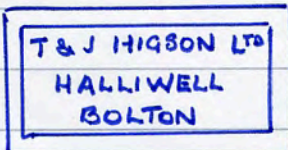 T & J HIGSON LTD
HALLIWELL
BOLTON